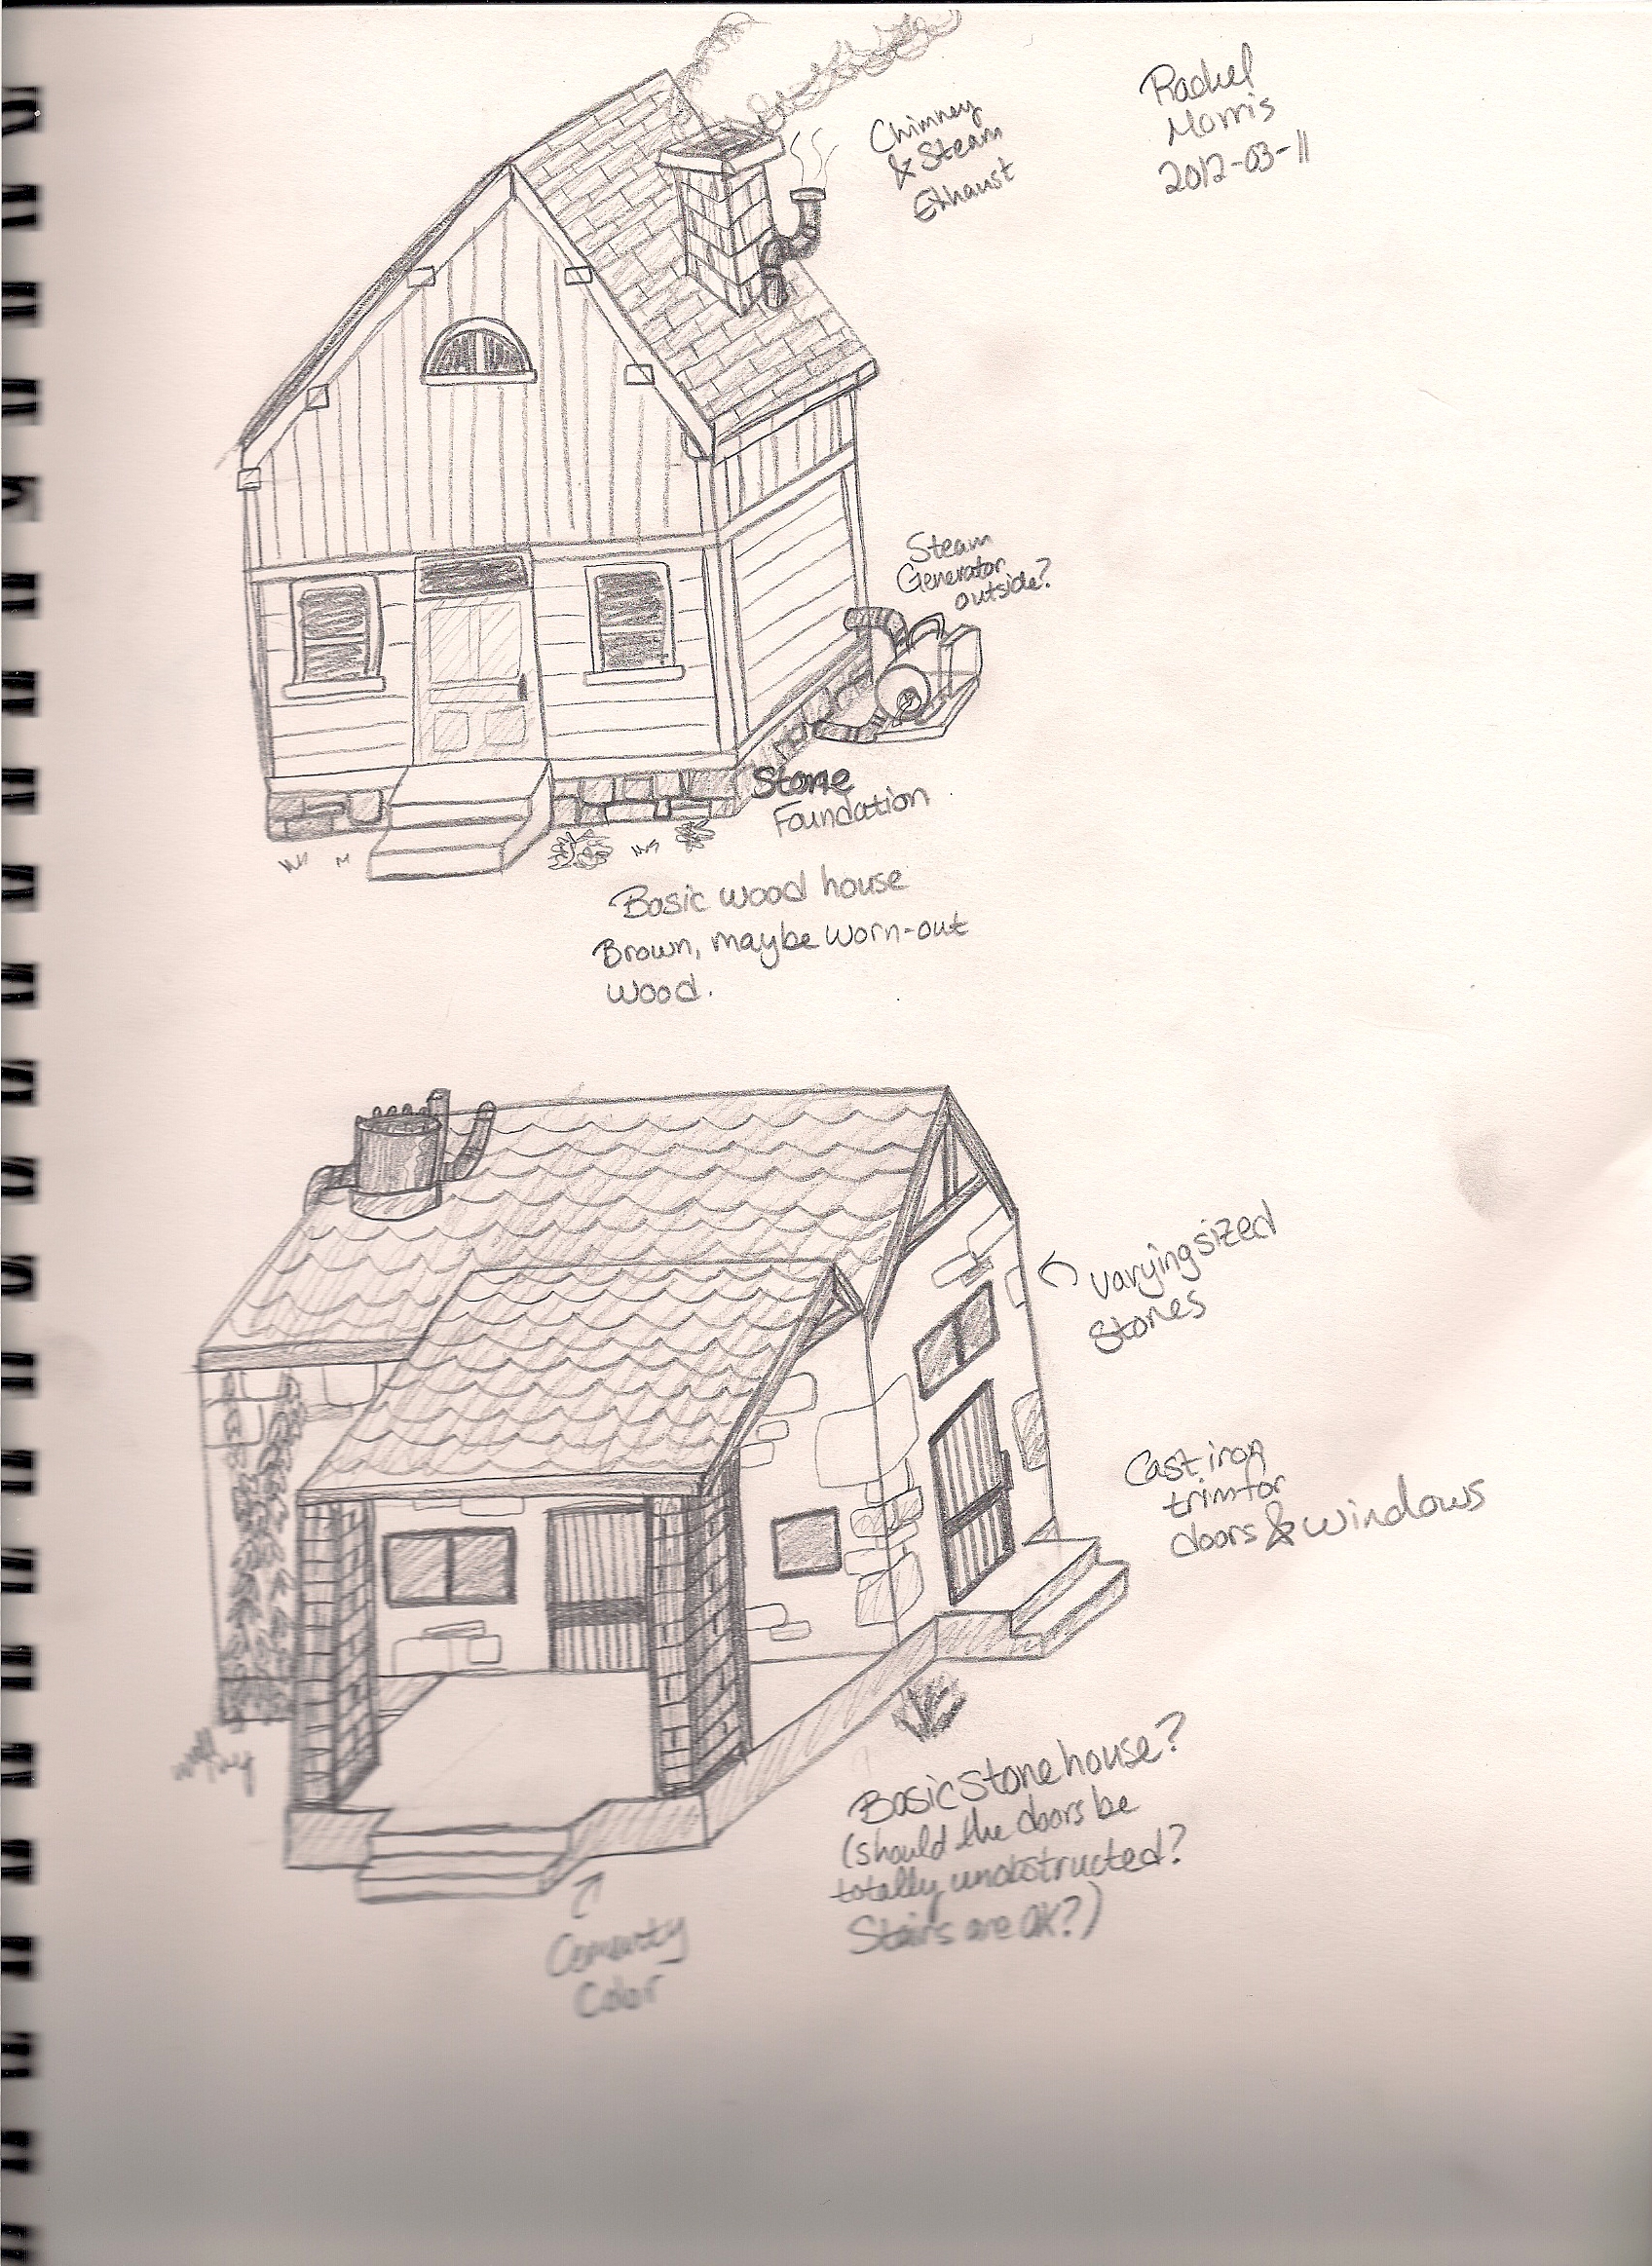 Rachel
Morris
2012-03-11
Chimney
& Steam
Exhaust
Steam
Generator
outside?
Stone
Foundation
Basic wood house
Brown, maybe worn-out
wood.
varying sized
stones
Cast iron
trim for
doors & windows
Basic stone house?
(should the doors be
totally unobstructed?
Stairs are OK?)
Color